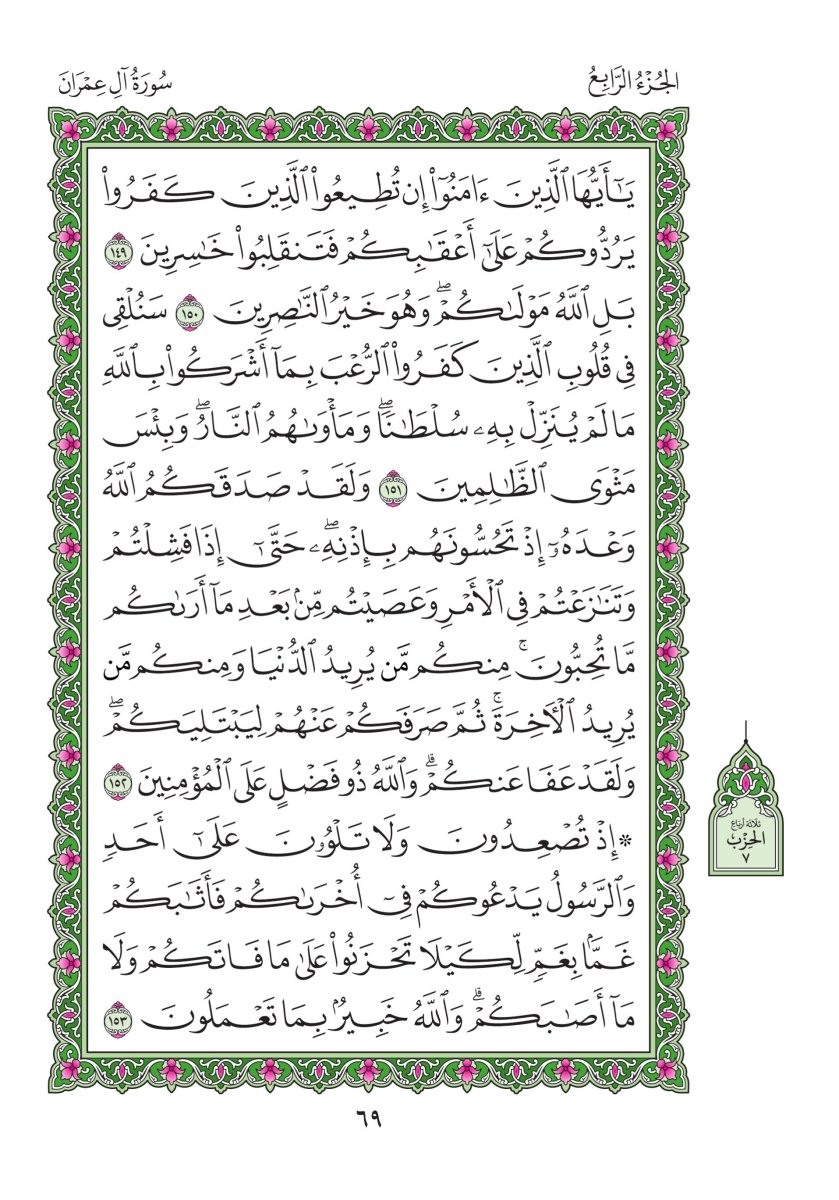 الجُزْءُ الرَّابِعُ
سُورَةُ آلِ عِمْرَانَ
يَـٰٓأَيُّهَا ٱلَّذِينَ ءَامَنُوٓا۟ إِن تُطِيعُوا۟ ٱلَّذِينَ كَفَرُوا۟
يَرُدُّوكُمْ عَلَىٰٓ أَعْقَـٰبِكُمْ فَتَنقَلِبُوا۟ خَـٰسِرِينَ ١٤٩
بَلِ ٱللَّهُ مَوْلَىٰكُمْ ۖ وَهُوَ خَيْرُ ٱلنَّـٰصِرِينَ ١٥٠ سَنُلْقِى
فِى قُلُوبِ ٱلَّذِينَ كَفَرُوا۟ ٱلرُّعْبَ بِمَآ أَشْرَكُوا۟ بِٱللَّهِ
مَا لَمْ يُنَزِّلْ بِهِۦ سُلْطَـٰنًا ۖ وَمَأْوَىٰهُمُ ٱلنَّارُ ۖ وَبِئْسَ
مَثْوَى ٱلظَّـٰلِمِينَ ١٥١ وَلَقَدْ صَدَقَكُمُ ٱللَّهُ
وَعْدَهُۥٓ إِذْ تَحُسُّونَهُم بِإِذْنِهِۦ ۖ حَتَّىٰٓ إِذَا فَشِلْتُمْ
وَتَنَـٰزَعْتُمْ فِى ٱلْأَمْرِ وَعَصَيْتُم مِّنۢ بَعْدِ مَآ أَرَىٰكُم
مَّا تُحِبُّونَ ۚ مِنكُم مَّن يُرِيدُ ٱلدُّنْيَا وَمِنكُم مَّن
يُرِيدُ ٱلْـَٔاخِرَةَ ۚ ثُمَّ صَرَفَكُمْ عَنْهُمْ لِيَبْتَلِيَكُمْ ۖ
وَلَقَدْ عَفَا عَنكُمْ ۗ وَٱللَّهُ ذُو فَضْلٍ عَلَى ٱلْمُؤْمِنِينَ ١٥٢
* إِذْ تُصْعِدُونَ وَلَا تَلْوُۥنَ عَلَىٰٓ أَحَدٍ
وَٱلرَّسُولُ يَدْعُوكُمْ فِىٓ أُخْرَىٰكُمْ فَأَثَـٰبَكُمْ
غَمًّۢا بِغَمٍّ لِّكَيْلَا تَحْزَنُوا۟ عَلَىٰ مَا فَاتَكُمْ وَلَا
مَآ أَصَـٰبَكُمْ ۗ وَٱللَّهُ خَبِيرٌۢ بِمَا تَعْمَلُونَ ١٥٣
ثلاثة أرباع
الحِزْب
٧
٦٩